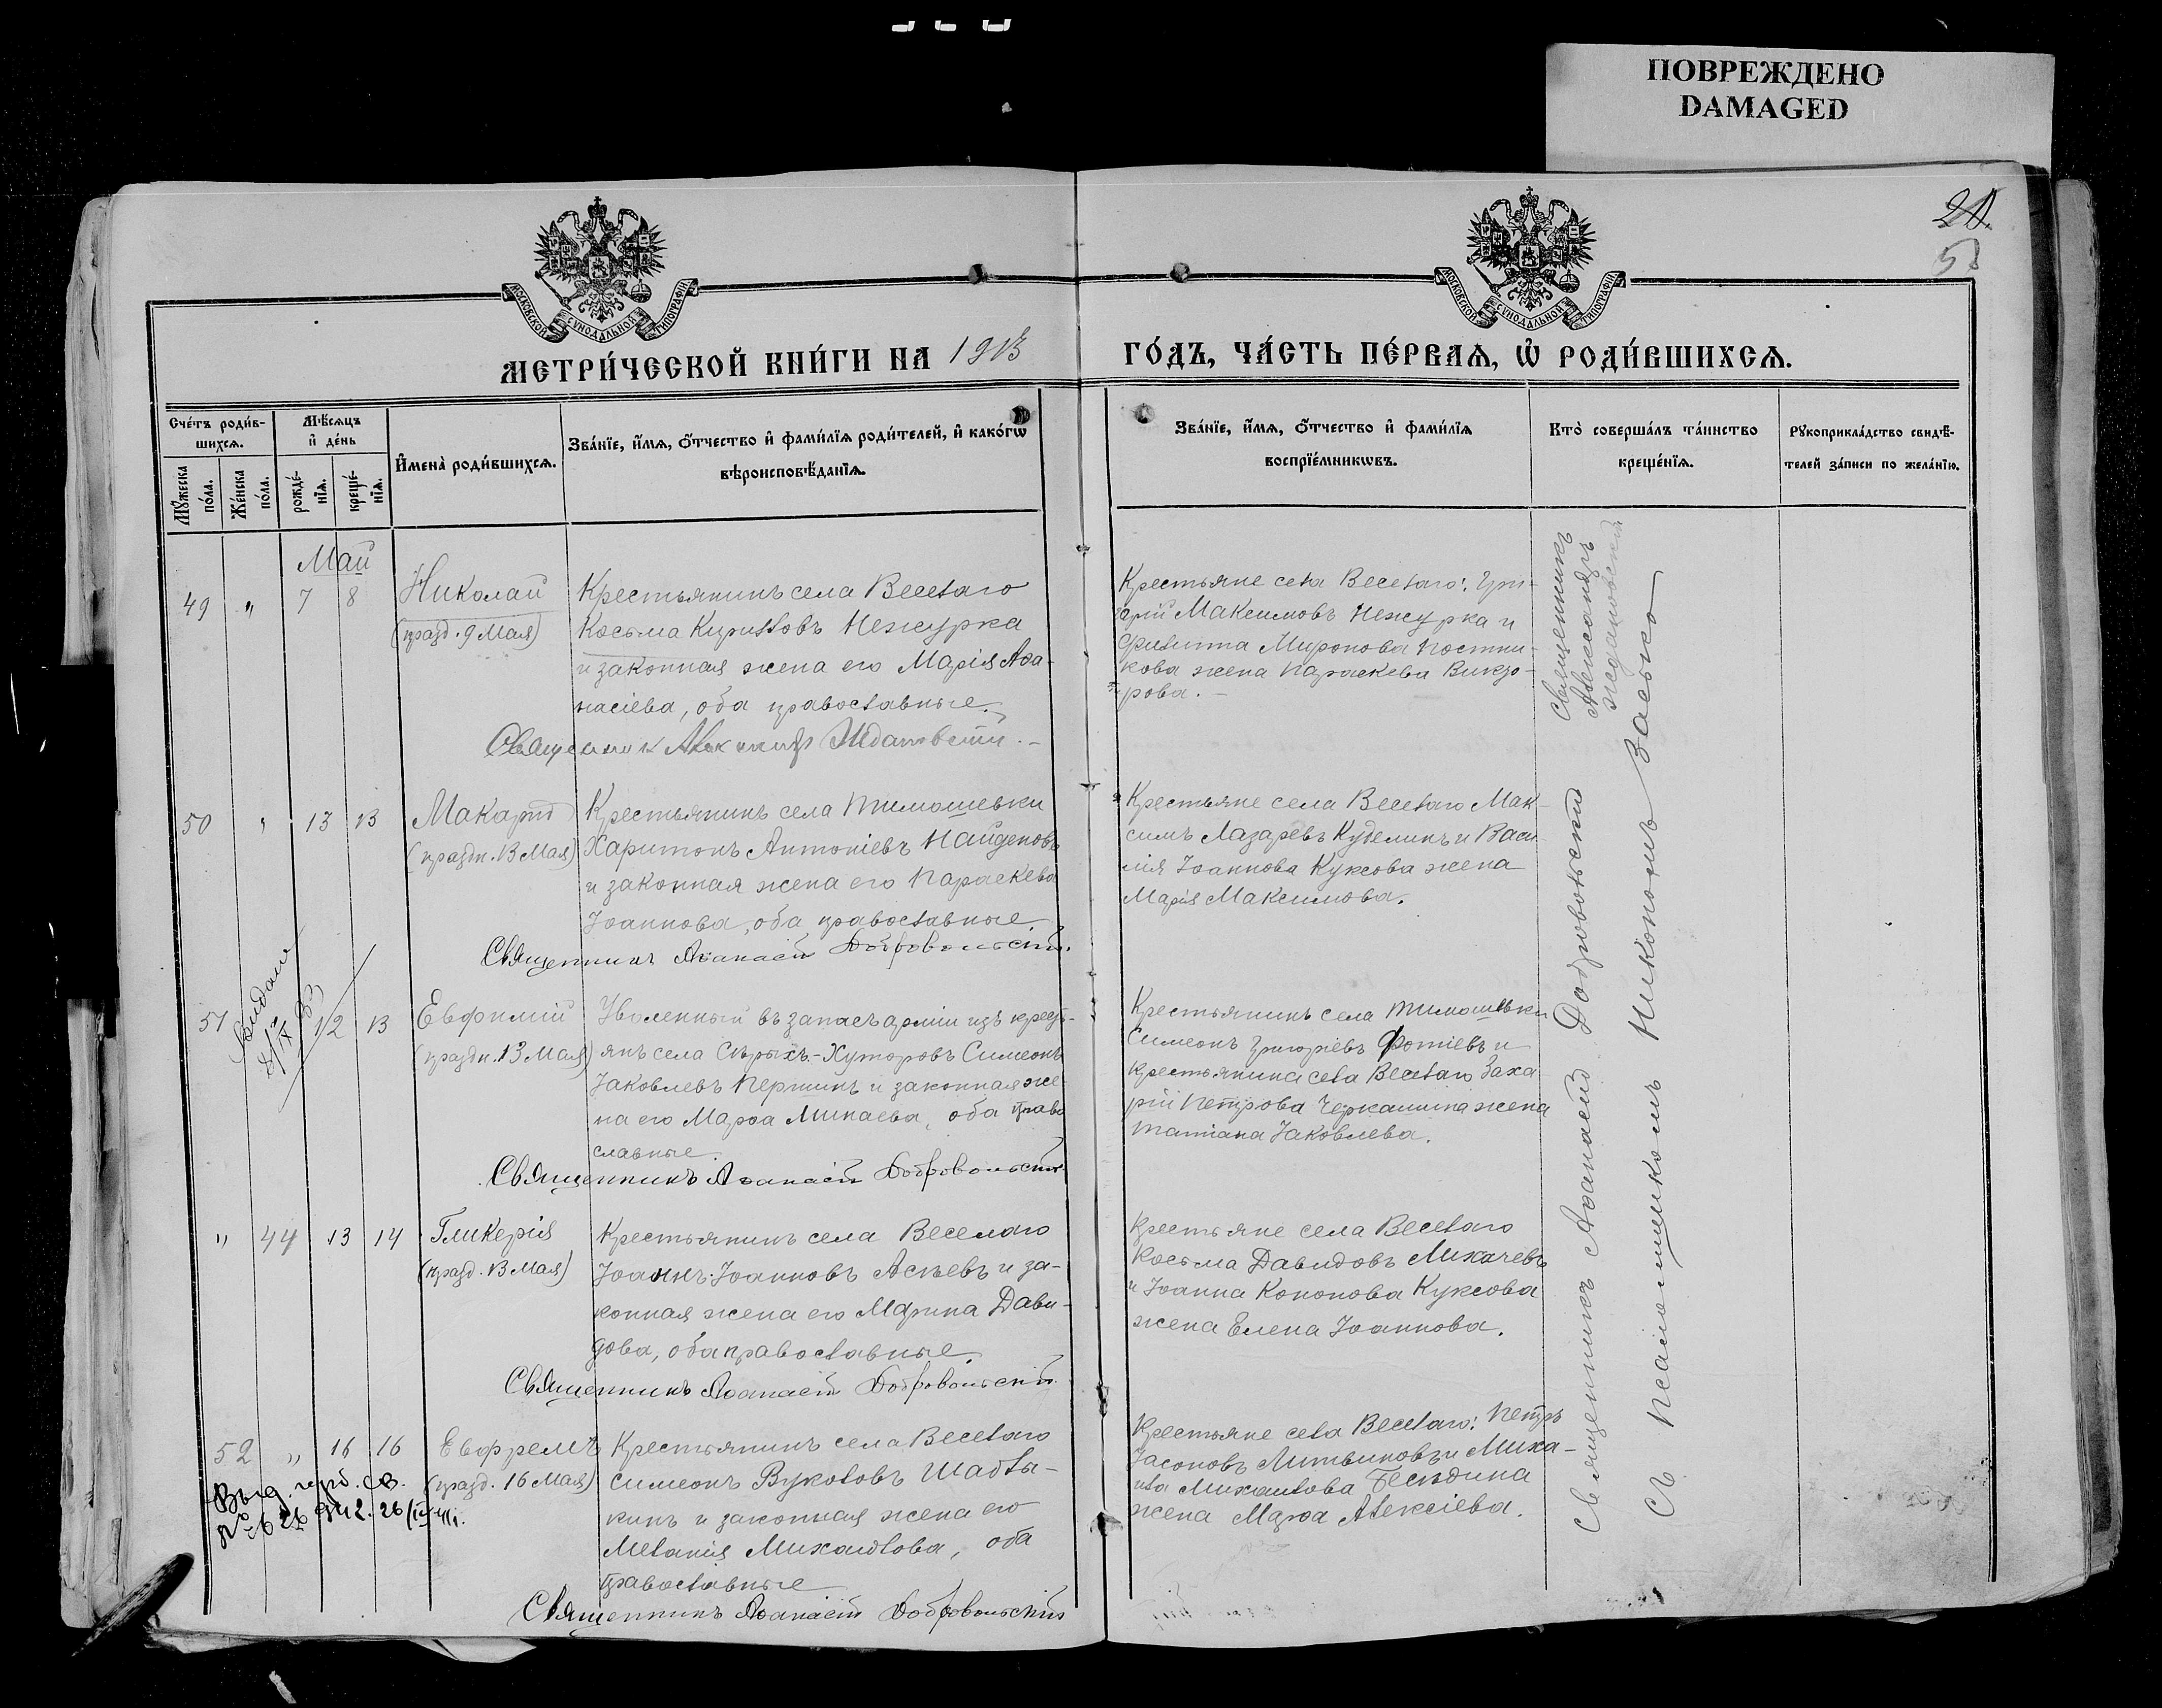 ПОВРЕЖДЕНО
DAMAGED
МОСКОВСКОЙ СѴНОДАЛЬНОЙ ТИПОГРАФІИ
МОСКОВСКОЙ СѴНОДАЛЬНОЙ ТИПОГРАФІИ
МЕТРИ́ЧЕСКОЙ КНИ́ГИ НА 1913
ГО́ДЪ, ЧА́СТЬ ПЕ́РВАѦ, Ѡ҆ РОДИ́ВШИХСѦ.
Сче́тъ роди́в-
шихсѧ.
Мѣ́сѧцъ
и҆ де́нь
Мꙋ́жеска по́ла.
Же́нска по́ла.
рожде́-нїѧ.
креще́-нїѧ.
И҆мена̀ роди́вшихсѧ.
Зва́нїе, и҆́мѧ, ѻ҆́тчество и҆ фами́лїѧ роди́телей, и҆ како́гѡ
вѣроисповѣ́данїѧ.
Зва́нїе, и҆́мѧ, ѻ҆́тчество и҆ фами́лїѧ
воспрїе́мникѡвъ.
Кто̀ соверша́лъ та́инство
креще́нїѧ.
Рꙋкоприкла́дство свидѣ́-
телей за́писи по жела́нїю.
Май
49 " 7 8 Николай
(празд. 9 Мая)
Крестьянинъ села Веселаго
Косьма Кирилловъ Нежурка
и законная жена его Марія Аѳа-
насіева, оба православные.
Священник Александр Ждановский
Крестьяне села Веселаго: Гри-
горій Максимовъ Нежурка и
Филиппа Миронова Постни-
кова жена Параскева Викто-
рова.
Священникъ
Александръ
Ждановскій
50 " 13 13 Макарій
(праздн. 13 Мая)
Крестьянинъ села Тимошевки
Харитонъ Антоніевъ Найденовъ
и законная жена его Параскева
Іоаннова, оба православные.
Священникъ Аѳанасій Добровольскій.
Крестьяне села Веселаго Мак-
симъ Лазаревъ Куделинъ и Васи-
лія Іоаннова Куксова жена
Марія Максимова.
51 12 13 Евфимій
(праздн. 13 Мая)
Уволенный въ запасъ арміи изъ крест-
янъ села Сѣрыхъ-Хуторовъ Симеонъ
Іаковлевъ Першинъ и законная же-
на его Марѳа Минаева, оба право
славные.
Священникъ Аѳанасій Добровольскій
Крестьянинъ села Тимошевки
Симеонъ Григоріевъ Фотіевъ и
крестьянина села Веселаго Заха
рій Петрова Черкашина жена
Татіана Іаковлева.
" 44 13 14 Гликерія
(празд. 13 Мая)
Крестьянинъ села Веселаго
Іоаннъ Іоанновъ Асѣевъ и за-
конная жена его Марина Дави-
дова, оба православные.
Священникъ Аѳанасій Добровольскій
Крестьяне села Веселаго
Косьма Давидовъ Лихачевъ
и Іоанна Кононова Куксова
жена Елена Іоаннова.
52 " 16 16 Евфремъ
(празд. 16 Мая)
Крестьянинъ села Веселаго
Симеонъ Вуколовъ Шабль-
кинъ и законная жена его
Меланія Михаилова, оба
православные
Священникъ Аѳанасій Добровольскій
Крестьяне села Веселаго: Петръ
Іасоновъ Литвиновъ и Миха-
ила Михаилова Бесѣдина
жена Марѳа Алексіева.
Священникъ Аѳанасій Добровольскій
съ псаломщикомъ Никономъ Засько